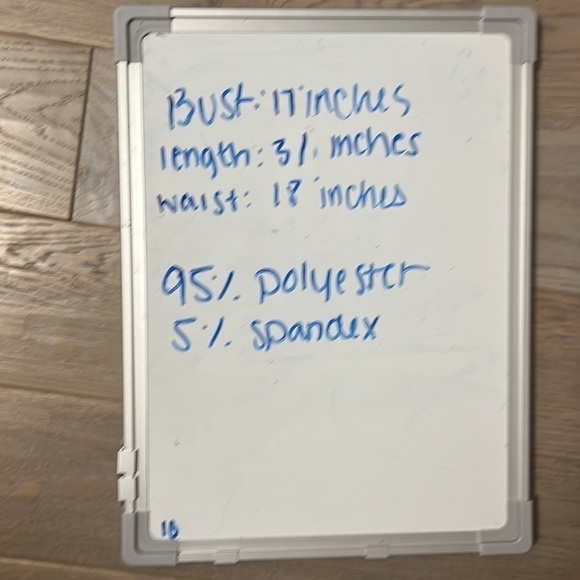 Bust: 17 inches
length: 31 inches
waist: 18 inches
95% polyester
5% spandex